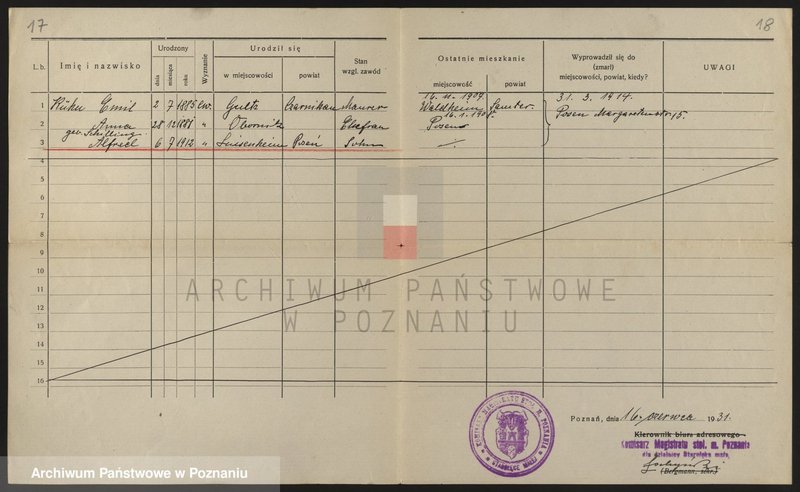 17
18
L.b.
Imię i nazwisko
Urodzony
dnia
miesiąca
roku
Wyznanie
Urodził się
w miejscowości
powiat
Stan
wzgl. zawód
Ostatnie mieszkanie
miejscowość
powiat
Wyprowadził się do
(zmarł)
miejscowości, powiat, kiedy?
UWAGI
16. 11. 1909. 31. 3. 1914.
1 Emil 2 7 1885 ew. Gultz Czarnikau Maurer Waldheim Samter
16. 1. 1908. Posen Margaretenstr 15.
2 Anna 28 12 1881 " Obornik Ehefrau Posen
geb. Schilling
3 Alfred 6 7 1912 " Luisenhein Posen Sohn
4
5
6
7
8
9
10
11
12
13
14
15
16
ARCHIWUM PAŃSTWOWE
W POZNANIU
Poznań, dnia 16 czerwca 1931.
Kierownik biura adresowego
Komisarz Magistratu stoł. m. Poznania
dla dzielnicy Starołęka mała
(Bergmann, sekr.)
STAROŁĘCE MAŁEJ
Archiwum Państwowe w Poznaniu